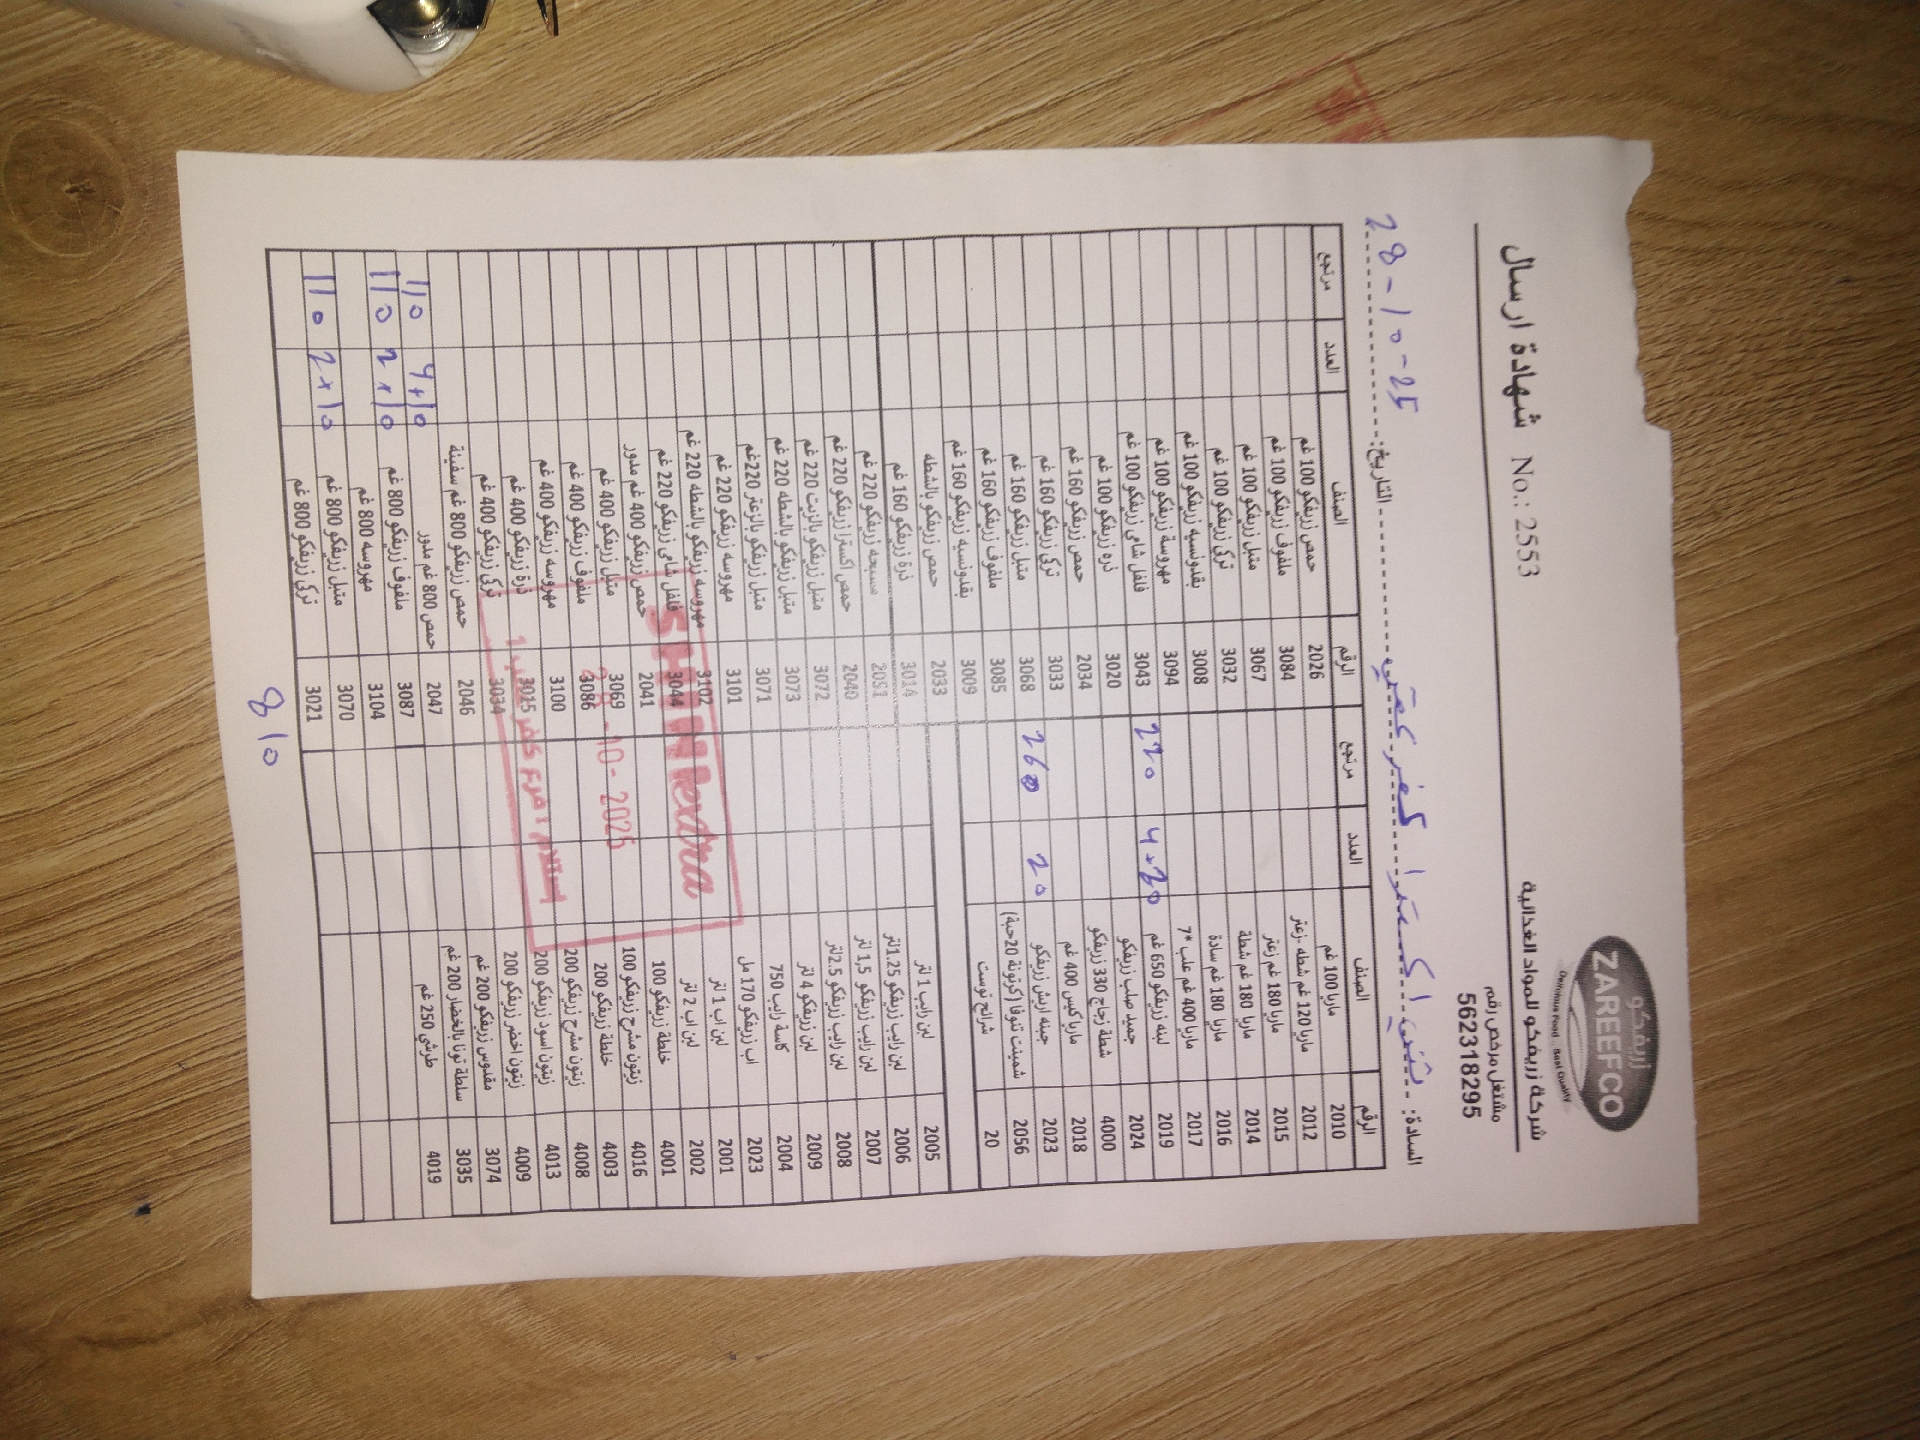 زريفكو
ZAREFCO
Delicious Food .. Best Quality
شركة زريفكو للمواد الغذائية
شهادة ارسال No.: 2553
مشتغل مرخص رقم
562318295
السادة: شني اكسترا كفر عقب التاريخ: 28-10-25
الرقم الصنف العدد مرتجع الرقم الصنف العدد مرتجع
2010 ماريا 100 غم 2026 حمص زريفكو 100 غم
2012 ماريا 120 غم شطه -زعتر 3084 ملفوف زريفكو 100 غم
2015 ماريا 180 غم زعتر 3067 متبل زريفكو 100 غم
2014 ماريا 180 غم شطة 3032 تركي زريفكو 100 غم
2016 ماريا 180 غم سادة 3008 بقدونسيه زريفكو 100 غم
2017 ماريا 400 غم علب *7 3094 مهروسة زريفكو 100 غم
2019 لبنه زريفكو 650 غم 4*20 220 3043 فلفل شامي زريفكو 100 غم
2024 جميد صلب زريفكو 3020 ذره زريفكو 100 غم
4000 شطة زجاج 330 زريفكو 2034 حمص زريفكو 160 غم
2018 ماريا كيس 400 غم 3033 تركي زريفكو 160 غم
2023 جبنه اريش زريفكو 20 260 3068 متبل زريفكو 160 غم
2056 شمينت تنوفا (كرتونة 20حبة) 3085 ملفوف زريفكو 160 غم
20 شرائح توست 3009 بقدونسيه زريفكو 160 غم
2033 حمص زريفكو بالشطه
2005 لبن رايب 1 لتر 3014 ذرة زريفكو 160 غم
2006 لبن رايب زريفكو 1.25لتر 2031 مسبحه زريفكو 220 غم
2007 لبن رايب زريفكو 1,5 لتر 2040 حمص اكسترا زريفكو 220 غم
2008 لبن رايب زريفكو 2.5لتر 3072 متبل زريفكو بالزيت 220 غم
2009 لبن زريفكو 4 لتر 3073 متبل زريفكو بالشطه 220 غم
2004 كاسة رايب 750 3071 متبل زريفكو بالزعتر 220غم
2023 اب زريفكو 170 مل 3101 مهروسه زريفكو 220 غم
2001 لبن اب 1 لتر 3102 مهروسه زريفكو بالشطه 220 غم
2002 لبن اب 2 لتر 3044 فلفل شامي زريفكو 220 غم
4001 خلطة زريفكو 100 2041 حمص زريفكو 400 غم مدور
4016 زيتون مشرح زريفكو 100 3069 متبل زريفكو 400 غم
4003 خلطة زريفكو 200 3086 ملفوف زريفكو 400 غم
4008 زيتون مشرح زريفكو 200 3100 مهروسه زريفكو 400 غم
4013 زيتون اسود زريفكو 200 3015 ذرة زريفكو 400 غم
4009 زيتون اخضر زريفكو 200 3034 تركي زريفكو 400 غم
3074 مقدوس زريفكو 200 غم 2046 حمص زريفكو 800 غم سفينة
3035 سلطة تونا بالخضار 200 غم 2047 حمص 800 غم مدور 4*10 110
4019 طرشي 250 غم 3087 ملفوف زريفكو 800 غم 2*10 110
3104 مهروسه 800 غم
3070 متبل زريفكو 800 غم 2*10 110
3021 تركي زريفكو 800 غم
810
SHINI extra
28-10-2025
إستلام / فرع كفر عقب 1